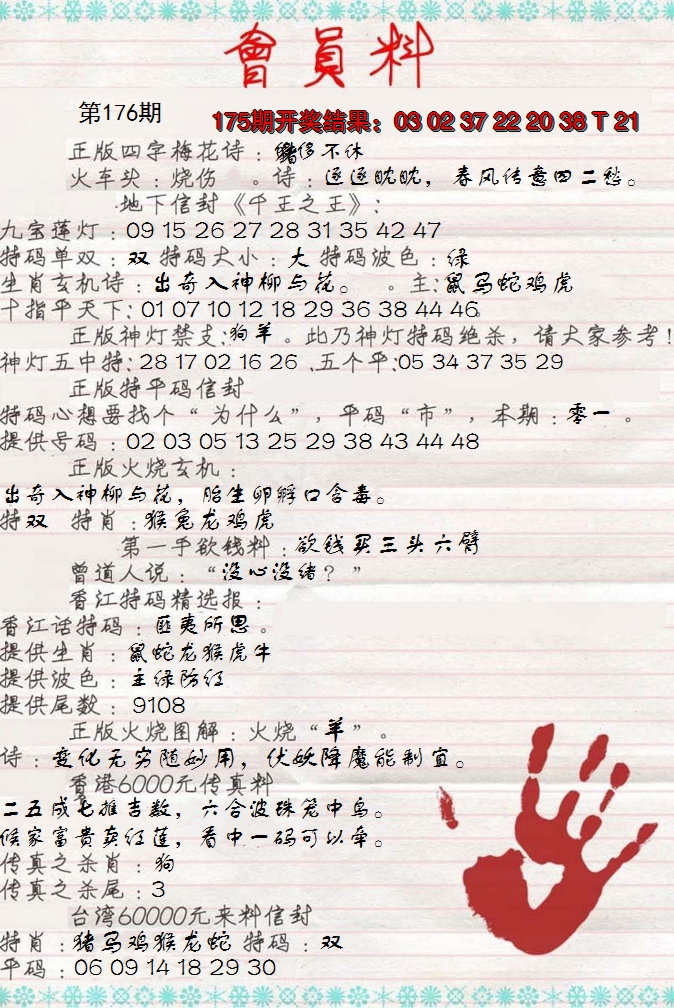 會員料
第176期
175期开奖结果：03 02 37 22 20 38 T 21
正版四字梅花诗：不休
火车头：烧伤 。诗：逐逐眈眈，春风传意四二愁。
地下信封《千王之王》：
九宝莲灯：09 15 26 27 28 31 35 42 47
特码单双：双 特码大小：大 特码波色：绿
生肖玄机诗：出奇入神柳与花。 。主：鼠马蛇鸡虎
十指平天下：01 07 10 12 18 29 36 38 44 46.
正版神灯禁支：狗羊。此乃神灯特码绝杀，请大家参考！
神灯五中特：28 17 02 16 26 .五个平：05 34 37 35 29
正版特平码信封
特码心想要找个“为什么”，平码“市”，本期：零一。
提供号码：02 03 05 13 25 29 38 43 44 48
正版火烧玄机：
出奇入神柳与花，胎生卵孵口含毒。
特双 特肖：猴兔龙鸡虎
第一手欲钱料：欲钱买三头六臂
曾道人说：“没心没绪？”
香江特码精选报：
香江话特码：匪夷所思。
提供生肖：鼠蛇龙猴虎牛
提供波色：主绿防红
提供尾数：9108
正版火烧图解：火烧“羊”。
诗：变化无穷随妙用，伏妖降魔能制宜。
香港6000元传真料
二五成七推吉数，六合波珠笼中鸟。
候家富贵卖红莲，看中一码可以牵。
传真之杀肖：狗
传真之杀尾：3
台湾60000元来料信封
特肖：猪马鸡猴龙蛇 特码：双
平码：06 09 14 18 29 30